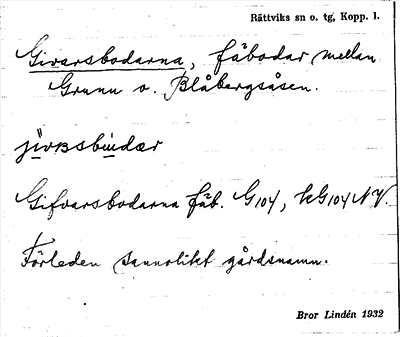 Rättviks sn o. tg, Kopp. l.
Givarsbodarna, fäbodar mellan
Grunn o. Blåbergsåsen.
jivasbudær
Gifvarsbodarna fäb. G104, kG104 NV.
Förleden sannolikt gårdsnamn.
Bror Lindén 1932